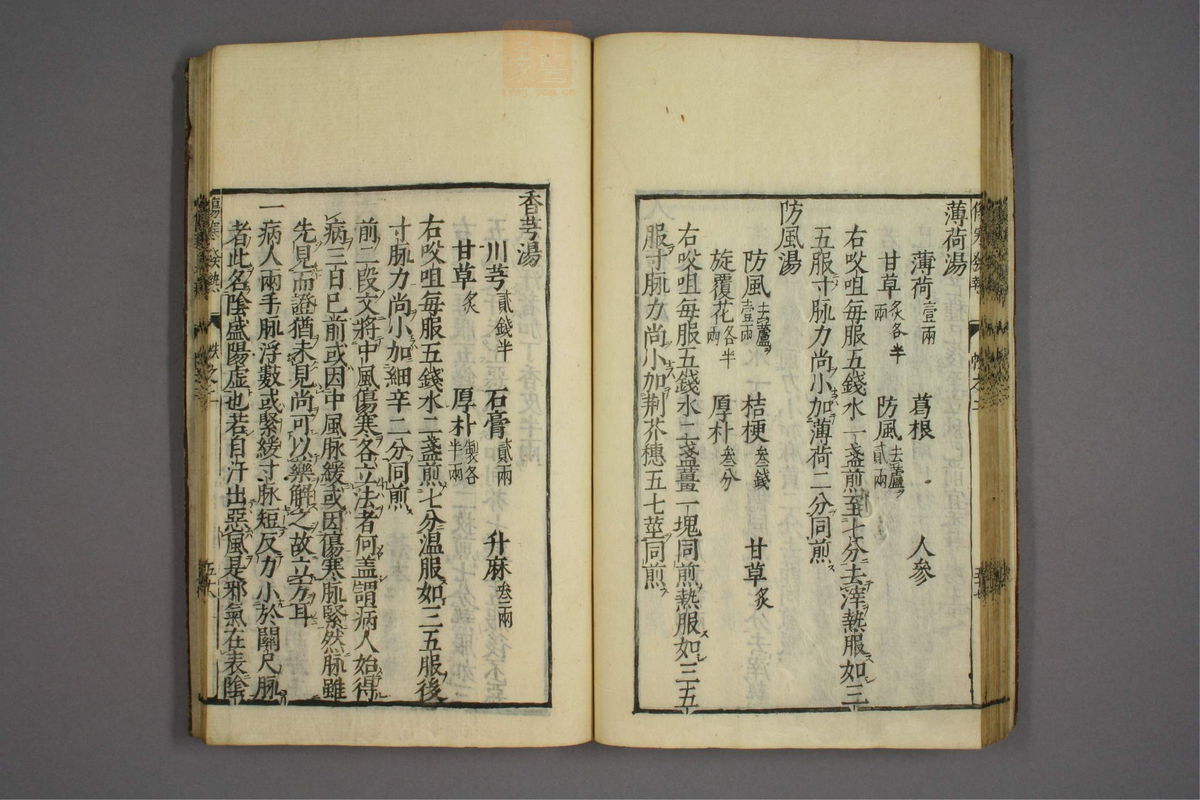 薄荷湯
薄荷壹兩　葛根　人參
甘草炙各半兩　防風去蘆貳兩
右㕮咀每服五錢水一盞煎至七分去滓熱服如三
五服寸脉力尚小加薄荷二分同煎
防風湯
防風去蘆壹兩　桔梗叁錢　甘草炙
旋覆花各半兩　厚朴叁分
右㕮咀每服五錢水一盞薑一塊同煎熱服如三五
服寸脉力尚小加荆芥穗五七莖同煎
香芎湯
川芎貳錢半　石膏貳兩　升麻叁兩
甘草炙　厚朴製各半兩
右㕮咀每服五錢水二盞煎七分温服如三五服後
寸脉力尚小加細辛二分同煎
前二段文將中風傷寒各立法者何盖謂病人始得
病三日已前或因中風脉緩或因傷寒脉緊然脉雖
先見而證猶未見尚可以藥解之故立方耳
一病人兩手脉浮數或緊緩寸脉短反力小於關尺脉
者此名陰盛陽虛也若自汗出惡風是邪氣在表陰